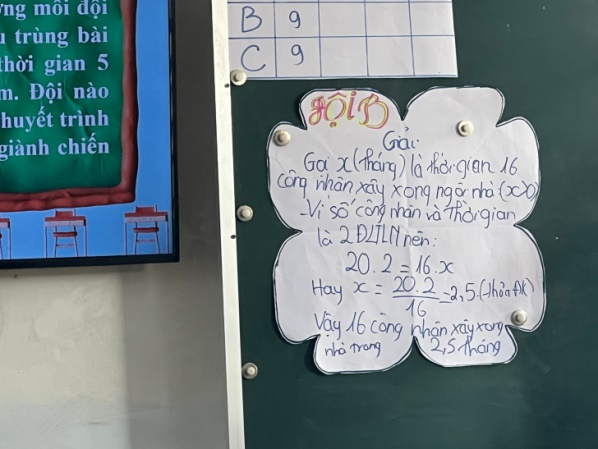 ng mỗi đội
trùng bài
thời gian 5
m. Đội nào
huyết trình
giành chiến
B 9
C 9
ĐỘI B
Giải:
Gọi x (tháng) là thời gian 16
công nhân xây xong ngôi nhà (x>0)
-Vì số công nhân và thời gian
là 2 ĐLTLN nên:
20.2 = 16.x
Hay x = 20.2/16 = 2,5.(thỏa ĐK)
Vậy 16 công nhân xây xong
nhà trong 2,5 tháng